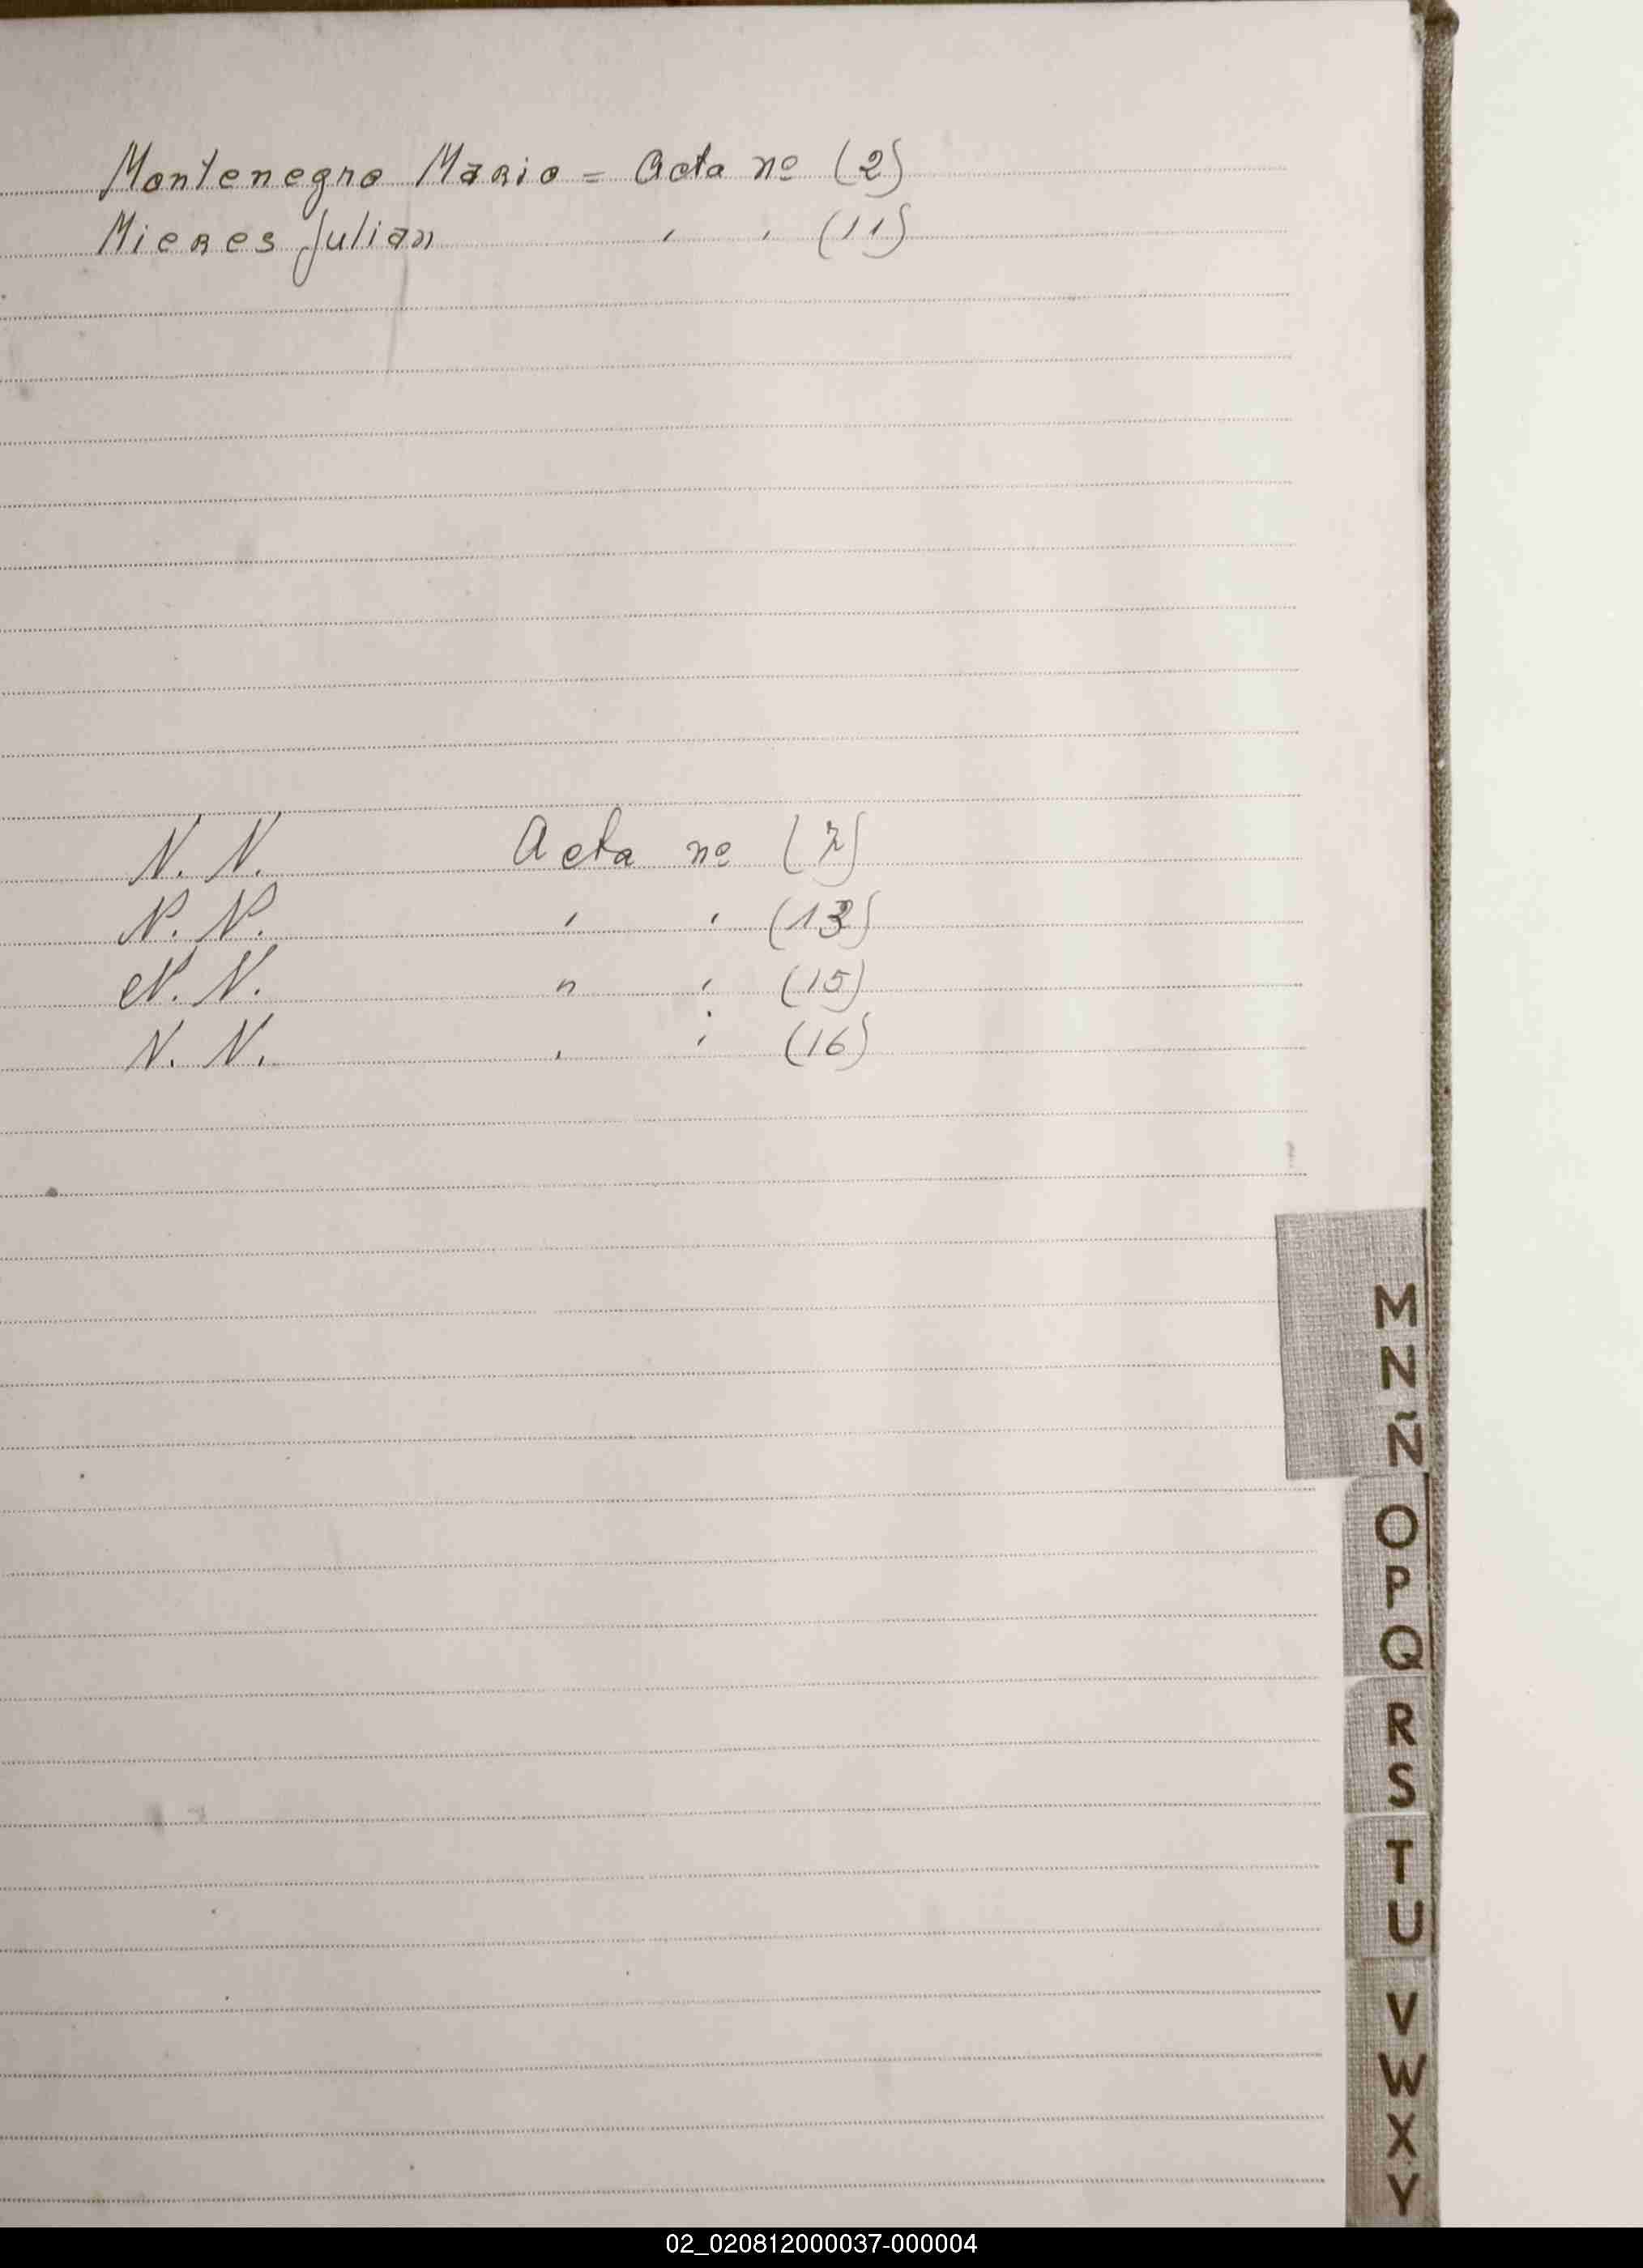 Montenegro Mario = Acta nº (2)
Mieres Julian " " (11)
N. N. Acta nº (7)
N. N. " " (13)
N. N. " " (15)
N. N. " " (16)
M
N
Ñ
O
P
Q
R
S
T
U
V
W
X
Y
02_020812000037-000004